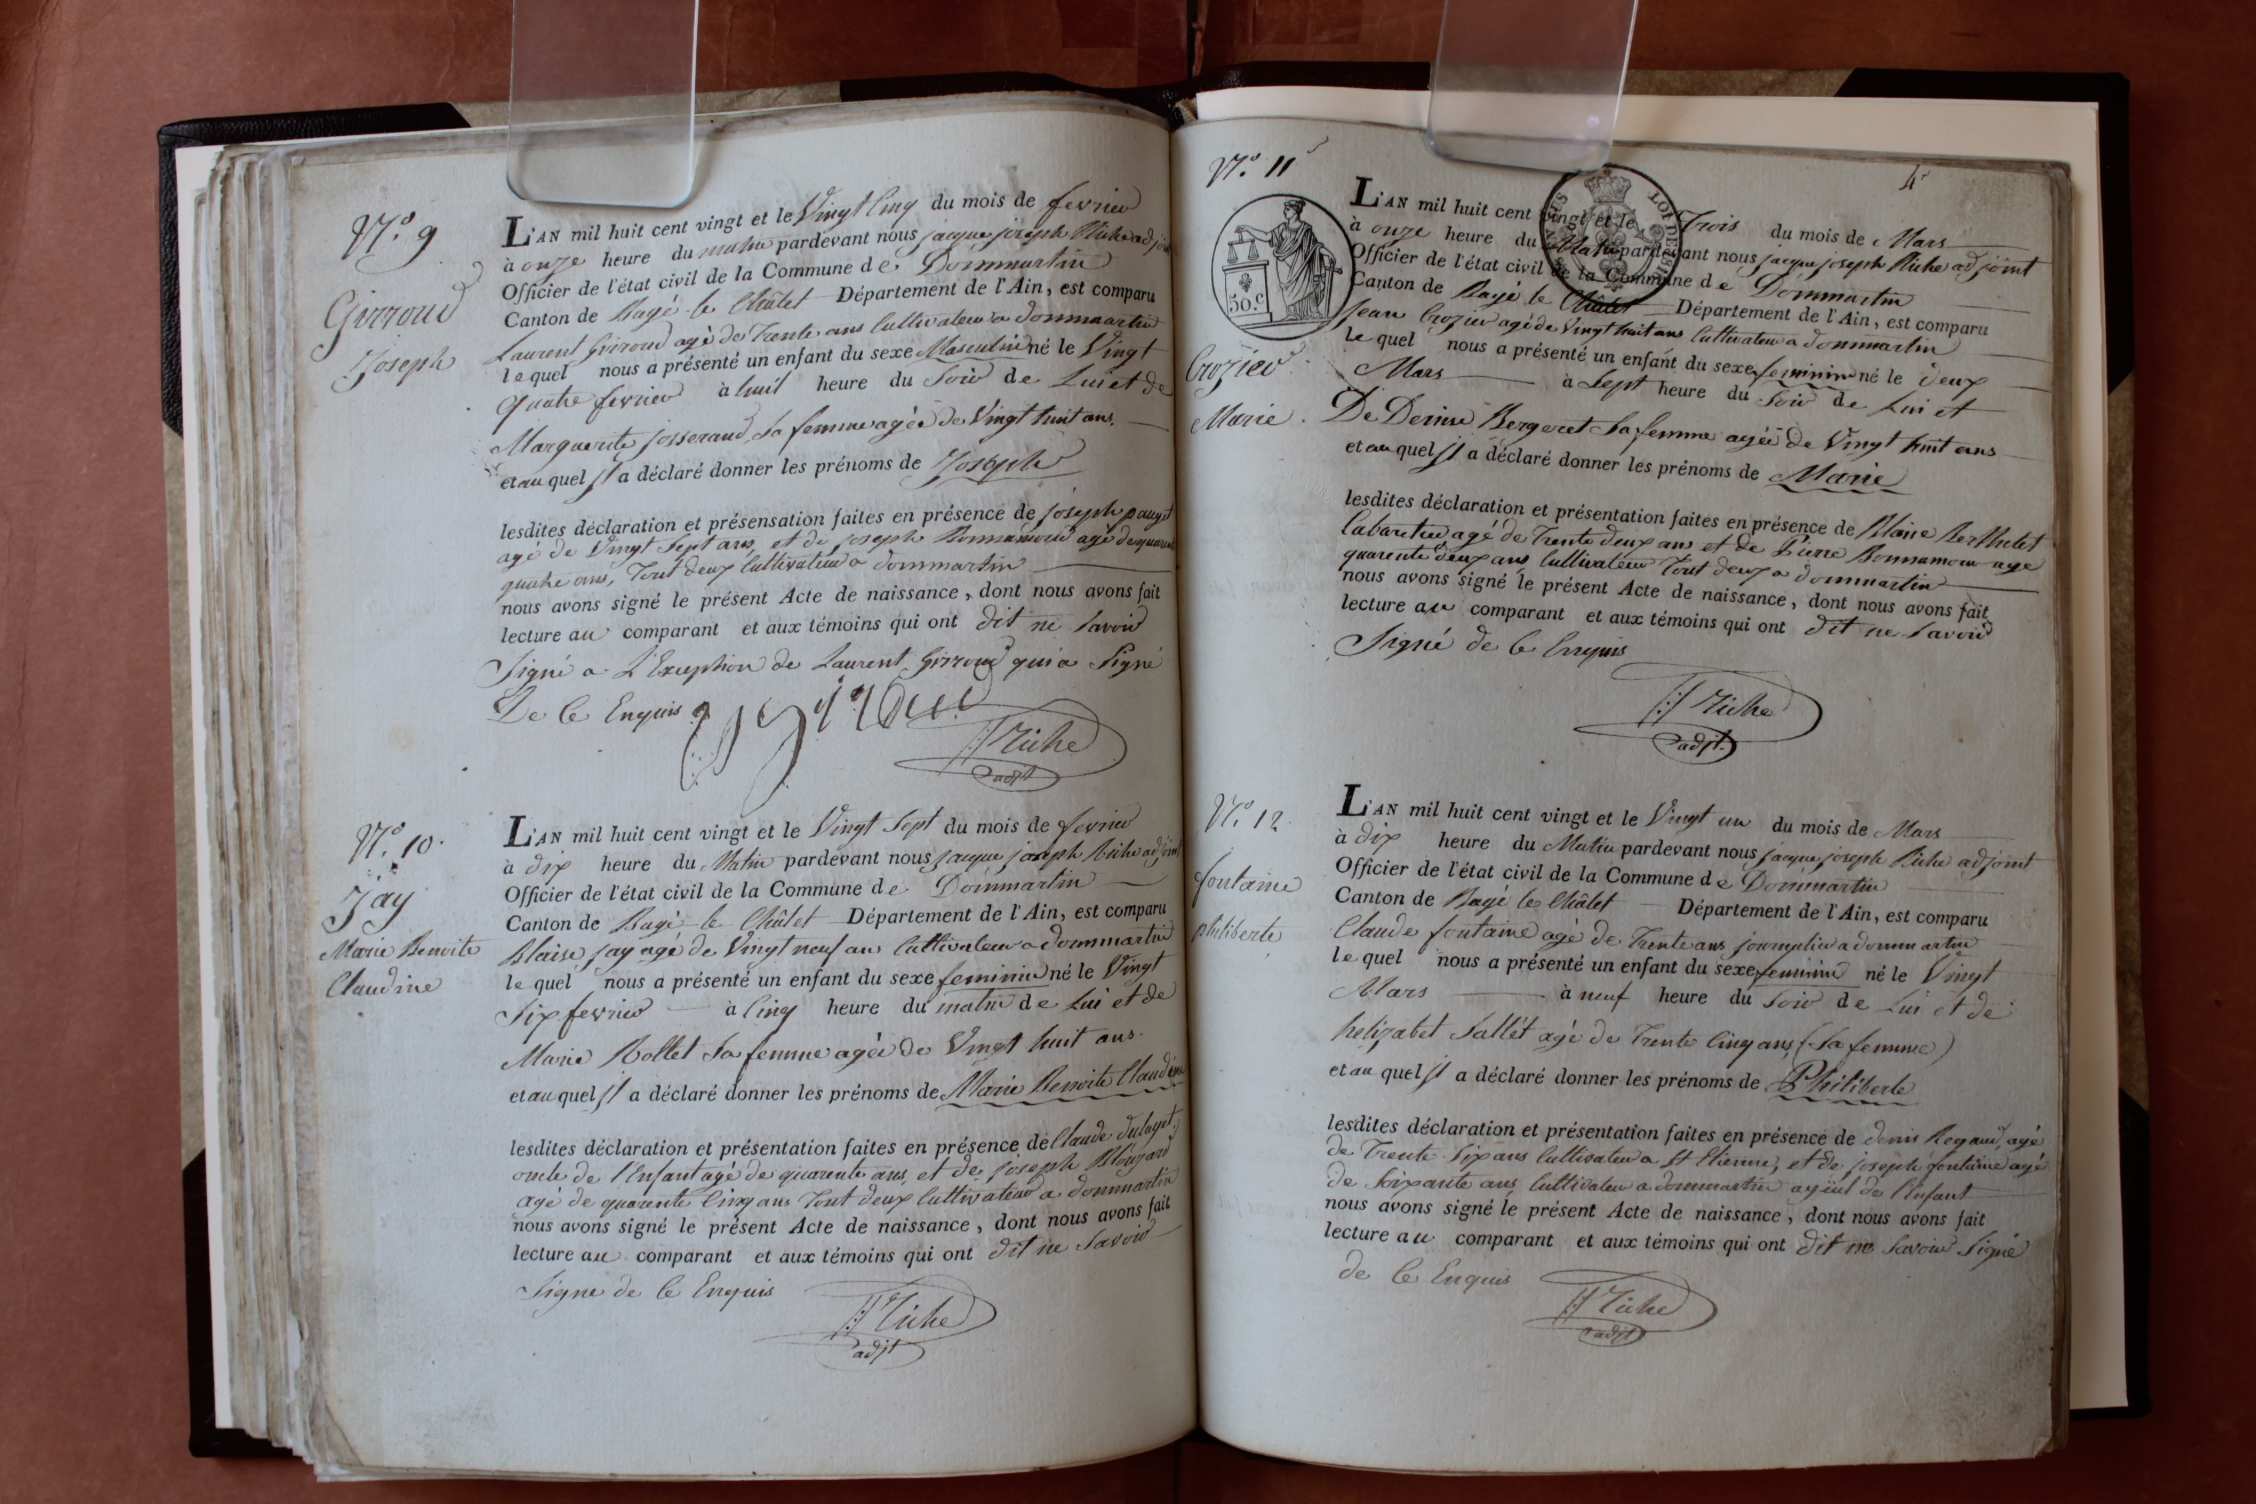 N.° 9
Girroud
Joseph
L'AN mil huit cent vingt et le Vingt Cinq du mois de fevrier
à onze heure du matin pardevant nous jacque joseph Riche adjoint
Officier de l'état civil de la Commune de Dommartin
Canton de Bagé le Châtel Département de l'Ain, est comparu
Laurent Girroud agé de Trente ans Cultivateur a dommartin
lequel nous a présenté un enfant du sexe Masculin né le Vingt
quatre fevrier à huit heure du Soir de Lui et de
Marguerite josserand Sa femme agée de Vingt huit ans.
et au quel Il a déclaré donner les prénoms de Joseph
lesdites déclaration et présensation faites en présence de joseph pauget
agé de Vingt Sept ans, et de joseph Bonnamour agé de quarante
quatre ans, Tout deux Cultivateur a dommartin
nous avons signé le présent Acte de naissance, dont nous avons fait
lecture au comparant et aux témoins qui ont dit ne Savoir
Signé a L'Exception de Laurent Girroud qui a Signé
De Ce Enquis
Riche
adjt
N.° 10.
Jay
Marie Benoite
Claudine
L'AN mil huit cent vingt et le Vingt Sept du mois de fevrier
à dix heure du Matin pardevant nous jacque joseph Riche adjoint
Officier de l'état civil de la Commune de Dommartin
Canton de Bagé le Châlet Département de l'Ain, est comparu
Blaise jay agé de Vingt neuf ans Cultivateur a dommartin
lequel nous a présenté un enfant du sexe feminin né le Vingt
Six fevrier à Cinq heure du matin de Lui et de
Marie Rollet Sa femme agée de Vingt huit ans.
et au quel Il a déclaré donner les prénoms de Marie Benoite Claudine
lesdites déclaration et présentation faites en présence de Claude
oncle de l'Enfant agé de quarente ans, et de joseph
agé de quarente Cinq ans Tout deux Cultivateur a dommartin
nous avons signé le présent Acte de naissance, dont nous avons fait
lecture au comparant et aux témoins qui ont dit ne Savoir
Signe de Ce Enquis
Riche
adjt
N.° 11
4
50.c
Crozier
Marie.
L'AN mil huit cent vingt et le Trois du mois de Mars
à onze heure du Matin pardevant nous jacque joseph Riche adjoint
Officier de l'état civil de la Commune de Dommartin
Canton de Bagé le Châtel Département de l'Ain, est comparu
Jean Crozier agé de Vingt huit ans Cultivateur a dommartin
lequel nous a présenté un enfant du sexe feminin né le deux
Mars à Sept heure du Soir de Lui et
De Denise Bergeret Sa femme agée de Vingt huit ans
et au quel Il a déclaré donner les prénoms de Marie
lesdites déclaration et présentation faites en présence de Blaise Berthelet
Cabaretier agé de Trente deux ans et de Pierre Bonnamour age
quarente deux ans Cultivateur Tout deux a dommartin
nous avons signé le présent Acte de naissance, dont nous avons fait
lecture au comparant et aux témoins qui ont dit ne Savoir
Signé de Ce Enquis
Riche
adjt.
N.° 12
fontaine
philiberte
L'AN mil huit cent vingt et le Vingt un du mois de Mars
à dix heure du Matin pardevant nous jacque joseph Riche adjoint
Officier de l'état civil de la Commune de Dommartin
Canton de Bagé le Châlet Département de l'Ain, est comparu
Claude fontaine agé de Trente ans journalier a dommartin
lequel nous a présenté un enfant du sexe feminin né le Vingt
Mars à neuf heure du Soir de Lui et de
helizabet Sallét agé de Trente Cinq ans (Sa femme)
et au quel Il a déclaré donner les prénoms de Philiberte
lesdites déclaration et présentation faites en présence de denis Regaud, agé
de Trente Six ans Cultivateur a St Etienne, et de joseph fontaine agé
de Soixante ans, Cultivateur a dommartin ayëul de l'Enfant
nous avons signé le présent Acte de naissance, dont nous avons fait
lecture au comparant et aux témoins qui ont dit ne Savoir Signé
de Ce Enquis
Riche
adjt